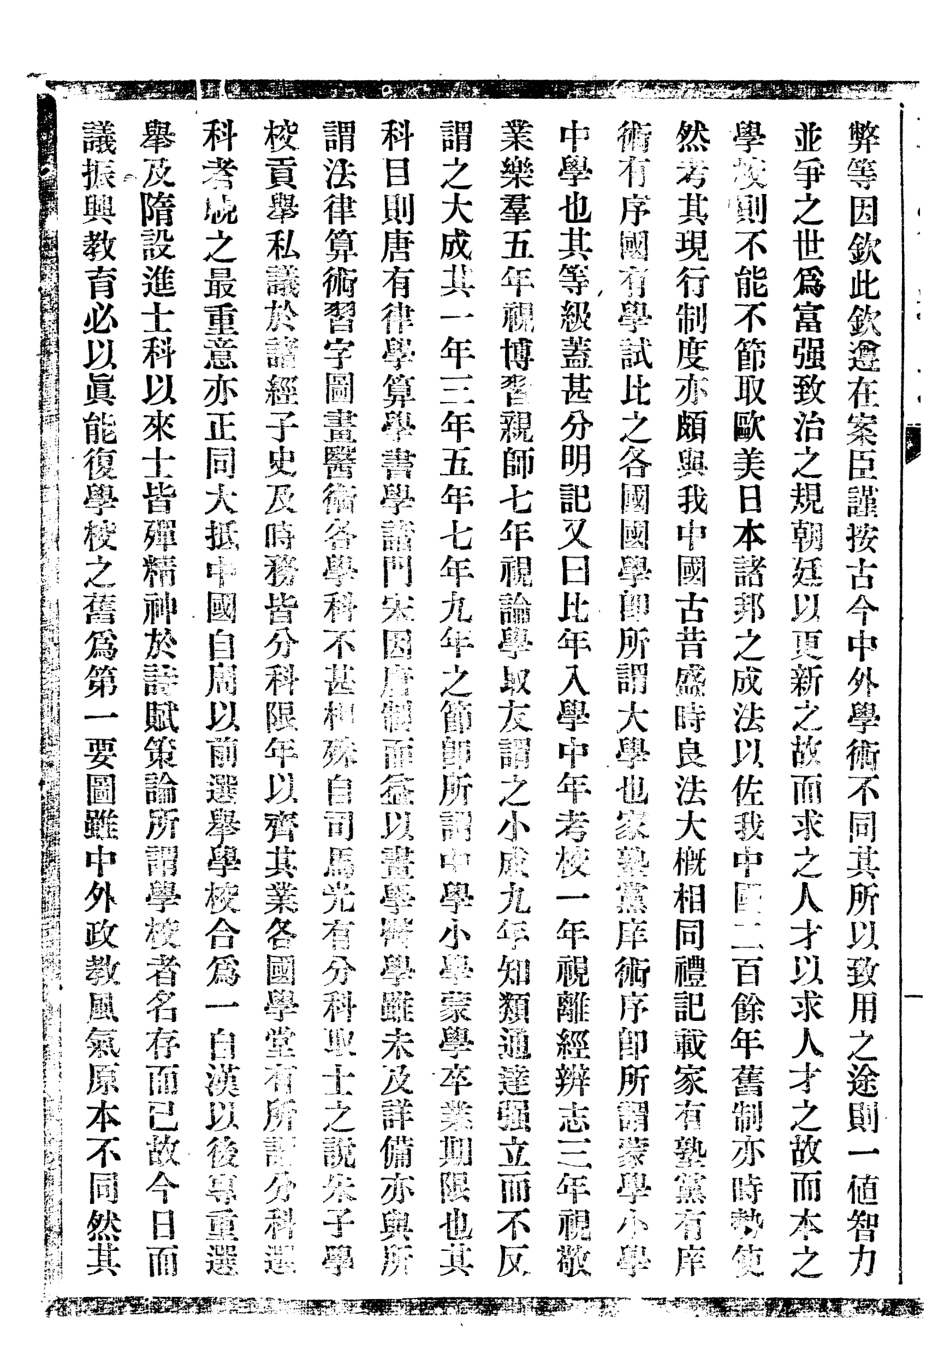 弊等因欽此欽遵在案臣謹按古今中外學術不同其所以致用之途則一値智力
並爭之世爲富强致治之規朝廷以更新之故而求之人才以求人才之故而本之
學校則不能不節取歐美日本諸邦之成法以佐我中國二百餘年舊制亦時勢使
然考其現行制度亦頗與我中國古昔盛時良法大槪相同禮記載家有塾黨有庠
術有序國有學試比之各國國學卽所謂大學也家塾黨庠術序卽所謂蒙學小學
中學也其等級蓋甚分明記又曰比年入學中年考校一年視離經辨志三年視敬
業樂羣五年視博習親師七年視論學取友謂之小成九年知類通達强立而不反
謂之大成其一年三年五年七年九年之節卽所謂中學小學蒙學卒業期限也其
科目則唐有律學算學書學諸門宋因唐制而益以畫學醫學雖未及詳備亦與所
謂法律算術習字圖畫醫術各學科不甚相殊自司馬光有分科取士之說朱子學
校貢舉私議於諸經子史及時務皆分科限年以齊其業各國學堂有所謂分科選
科考驗之最重意亦正同大抵中國自周以前選舉學校合爲一自漢以後專重選
舉及隋設進士科以來士皆殫精神於詩賦策論所謂學校者名存而已故今日而
議振興教育必以眞能復學校之舊爲第一要圖雖中外政教風氣原本不同然其